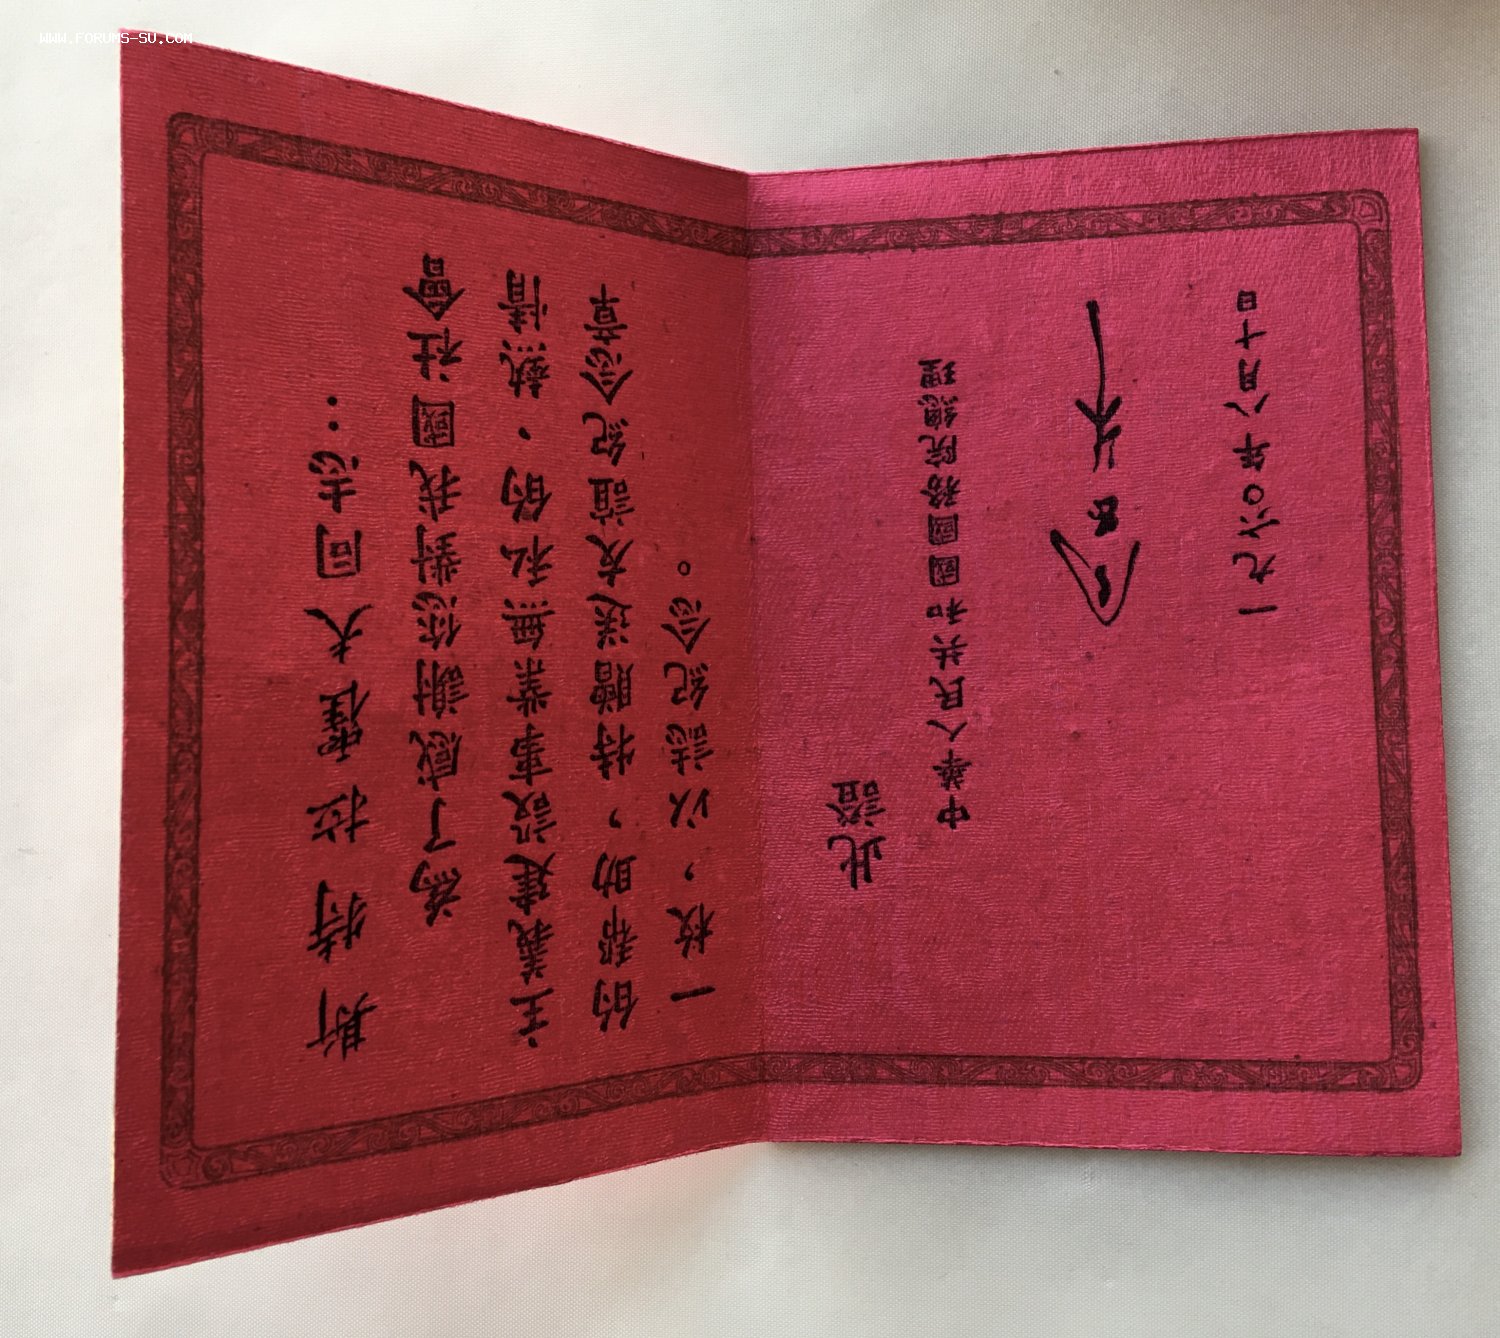 WWW.FORUMS-SU.COM
斯特拉霍夫同志：
為了感謝您對我國社會
主義建設事業無私的、熱情
的帮助，特贈送友誼紀念章
一枚，以誌紀念。
此證
中華人民共和國國務院總理
周恩来
一九六〇年八月十日